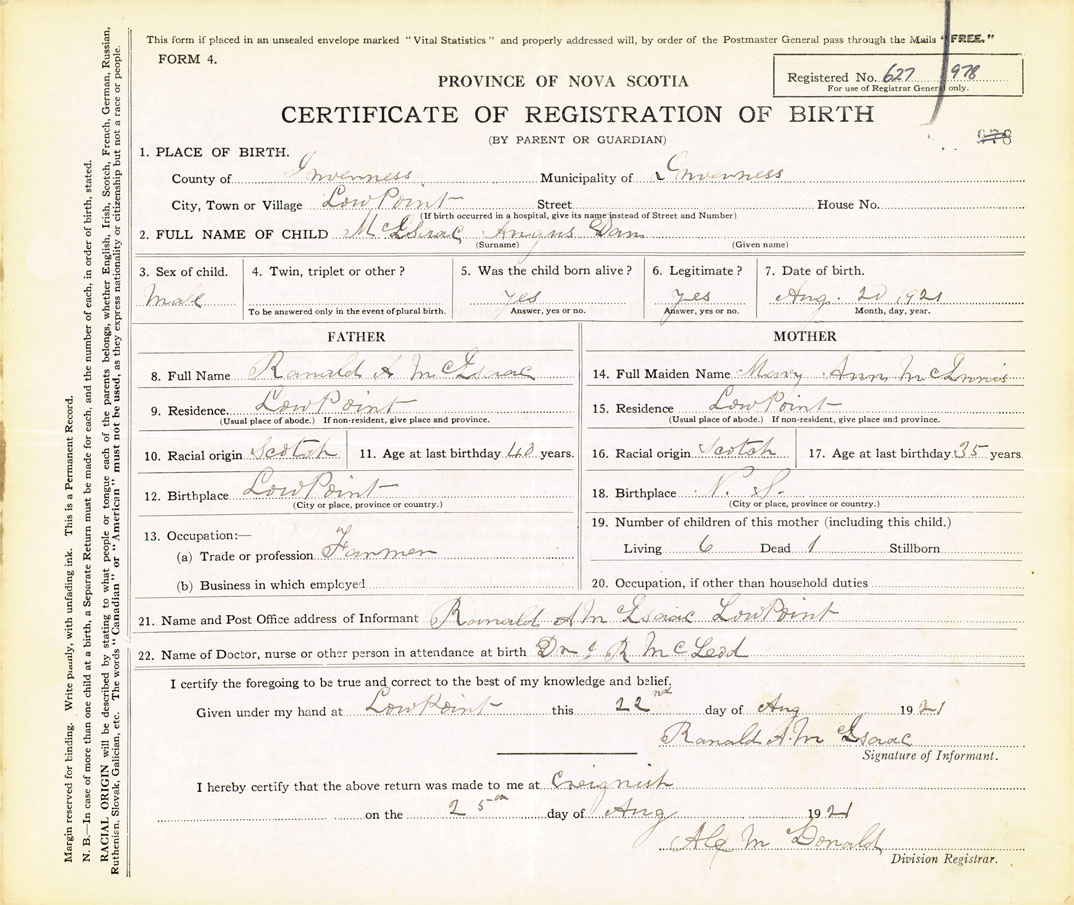 This form if placed in an unsealed envelope marked "Vital Statistics" and properly addressed will, by order of the Postmaster General pass through the Mails "FREE."
FORM 4.
PROVINCE OF NOVA SCOTIA
Registered No. 627 978
For use of Registrar General only.
CERTIFICATE OF REGISTRATION OF BIRTH
(BY PARENT OR GUARDIAN)
978
1. PLACE OF BIRTH.
County of Inverness Municipality of Inverness
City, Town or Village Low Point Street House No.
(If birth occurred in a hospital, give its name instead of Street and Number)
2. FULL NAME OF CHILD McIsaac Angus Dan
(Surname) (Given name)
3. Sex of child. 4. Twin, triplet or other? 5. Was the child born alive? 6. Legitimate? 7. Date of birth.
Male yes yes Aug. 20 1921
To be answered only in the event of plural birth. Answer, yes or no. Answer, yes or no. Month, day, year.
FATHER
8. Full Name Ranald A McIsaac
9. Residence. Low Point
(Usual place of abode.) If non-resident, give place and province.
10. Racial origin Scotch 11. Age at last birthday 40 years.
12. Birthplace Low Point
(City or place, province or country.)
13. Occupation:—
(a) Trade or profession Farmer
(b) Business in which employed
MOTHER
14. Full Maiden Name Mary Ann McInnis
15. Residence Low Point
(Usual place of abode.) If non-resident, give place and province.
16. Racial origin Scotch 17. Age at last birthday 35 years
18. Birthplace N. S.
(City or place, province or country.)
19. Number of children of this mother (including this child.)
Living 6 Dead 1 Stillborn
20. Occupation, if other than household duties
21. Name and Post Office address of Informant Ranald A McIsaac Low Point
22. Name of Doctor, nurse or other person in attendance at birth Dr J R McLeod
I certify the foregoing to be true and correct to the best of my knowledge and belief.
Given under my hand at Low Point this 22nd day of Aug 1921
Ranald A. McIsaac
Signature of Informant.
I hereby certify that the above return was made to me at Creignish
on the 25th day of Aug 1921
Alex McDonald
Division Registrar.
Margin reserved for binding. Write plainly, with unfading ink. This is a Permanent Record.
N. B.—In case of more than one child at a birth, a Separate Return must be made for each, and the number of each, in order of birth, stated.
RACIAL ORIGIN will be described by stating to what people or tongue each of the parents belongs, whether English, Irish, Scotch, French, German, Russian,
Ruthenian, Slovak, Galician, etc. The words "Canadian" or "American" must not be used, as they express nationality or citizenship but not a race or people.